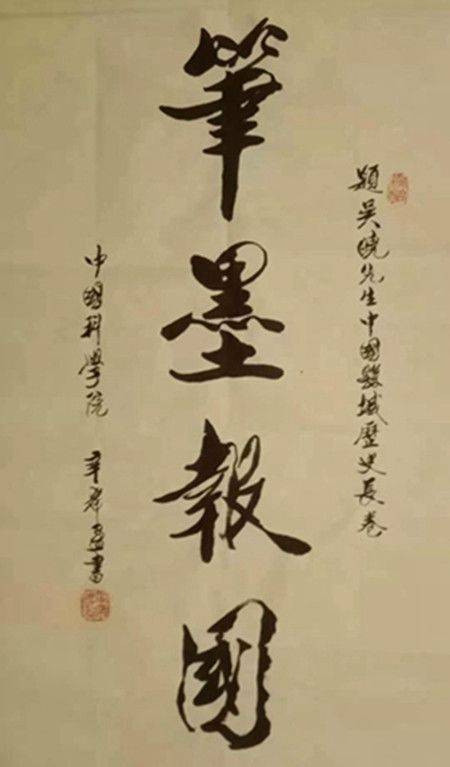 題吴曉先生中國駿城歷史長卷
筆墨報國
中國科學院 辛 書